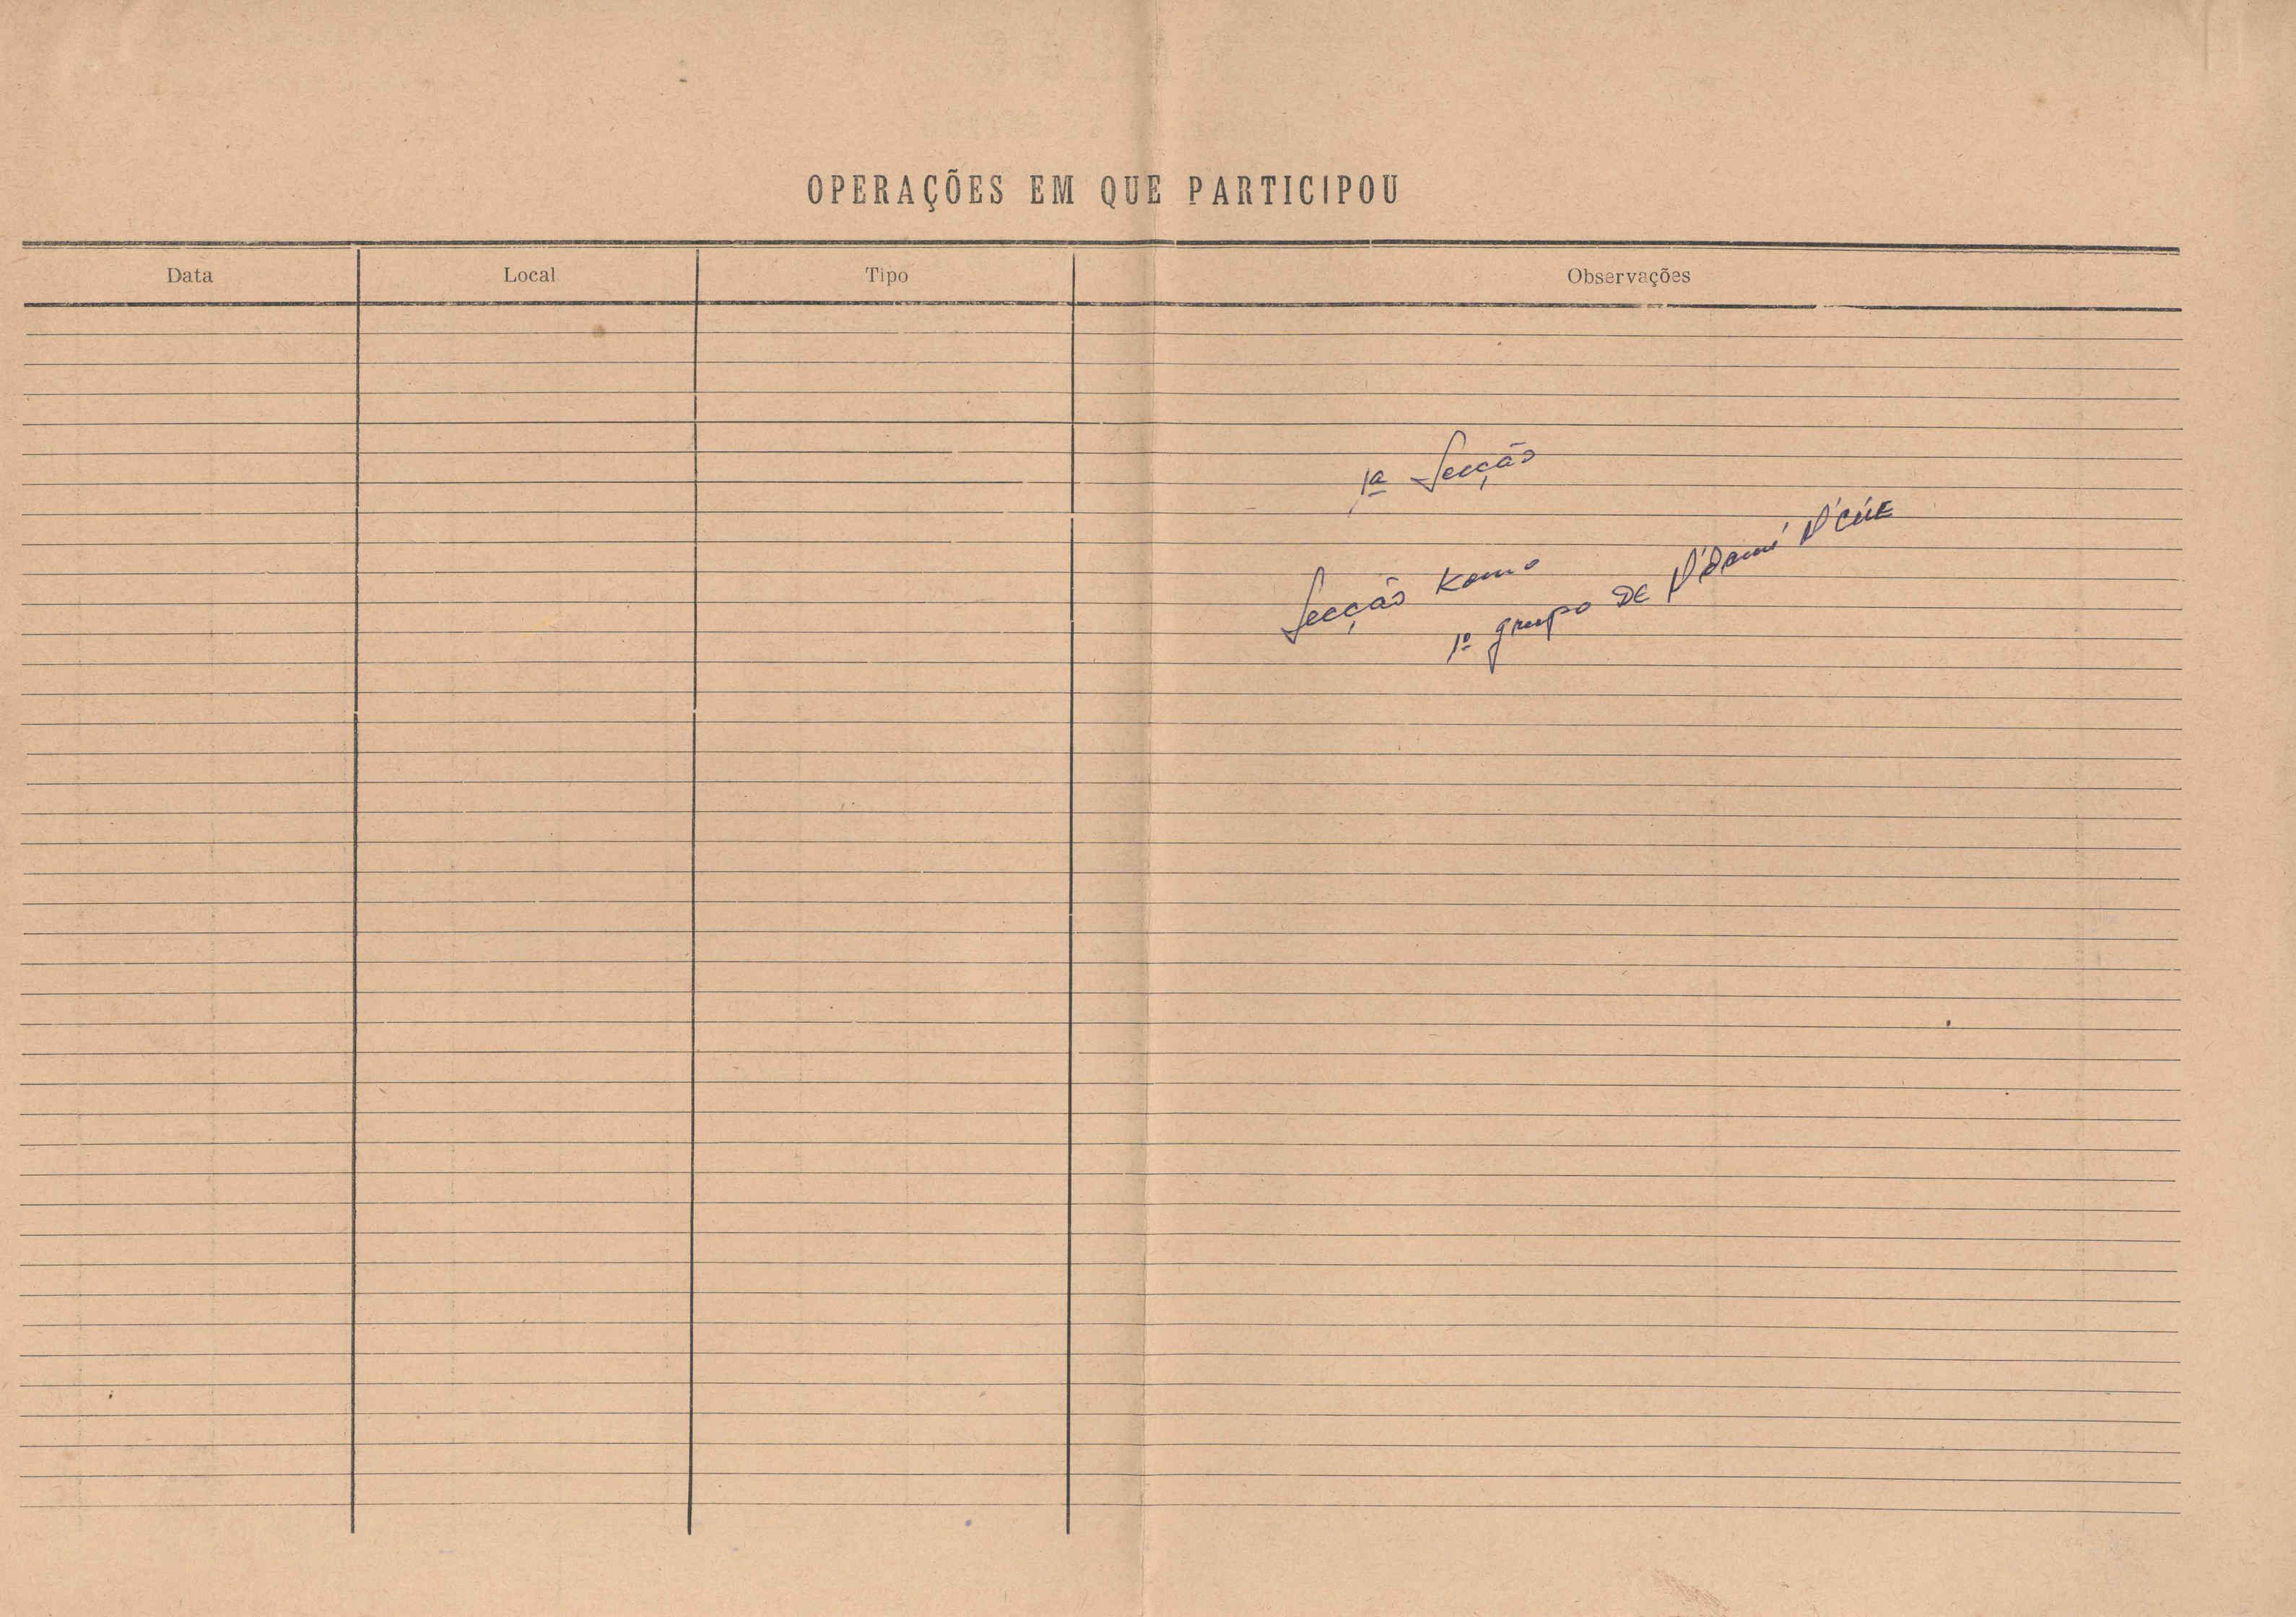 OPERAÇÕES EM QUE PARTICIPOU
Data Local Tipo Observações
1ª Secção
Secção Komo
1º grupo DE